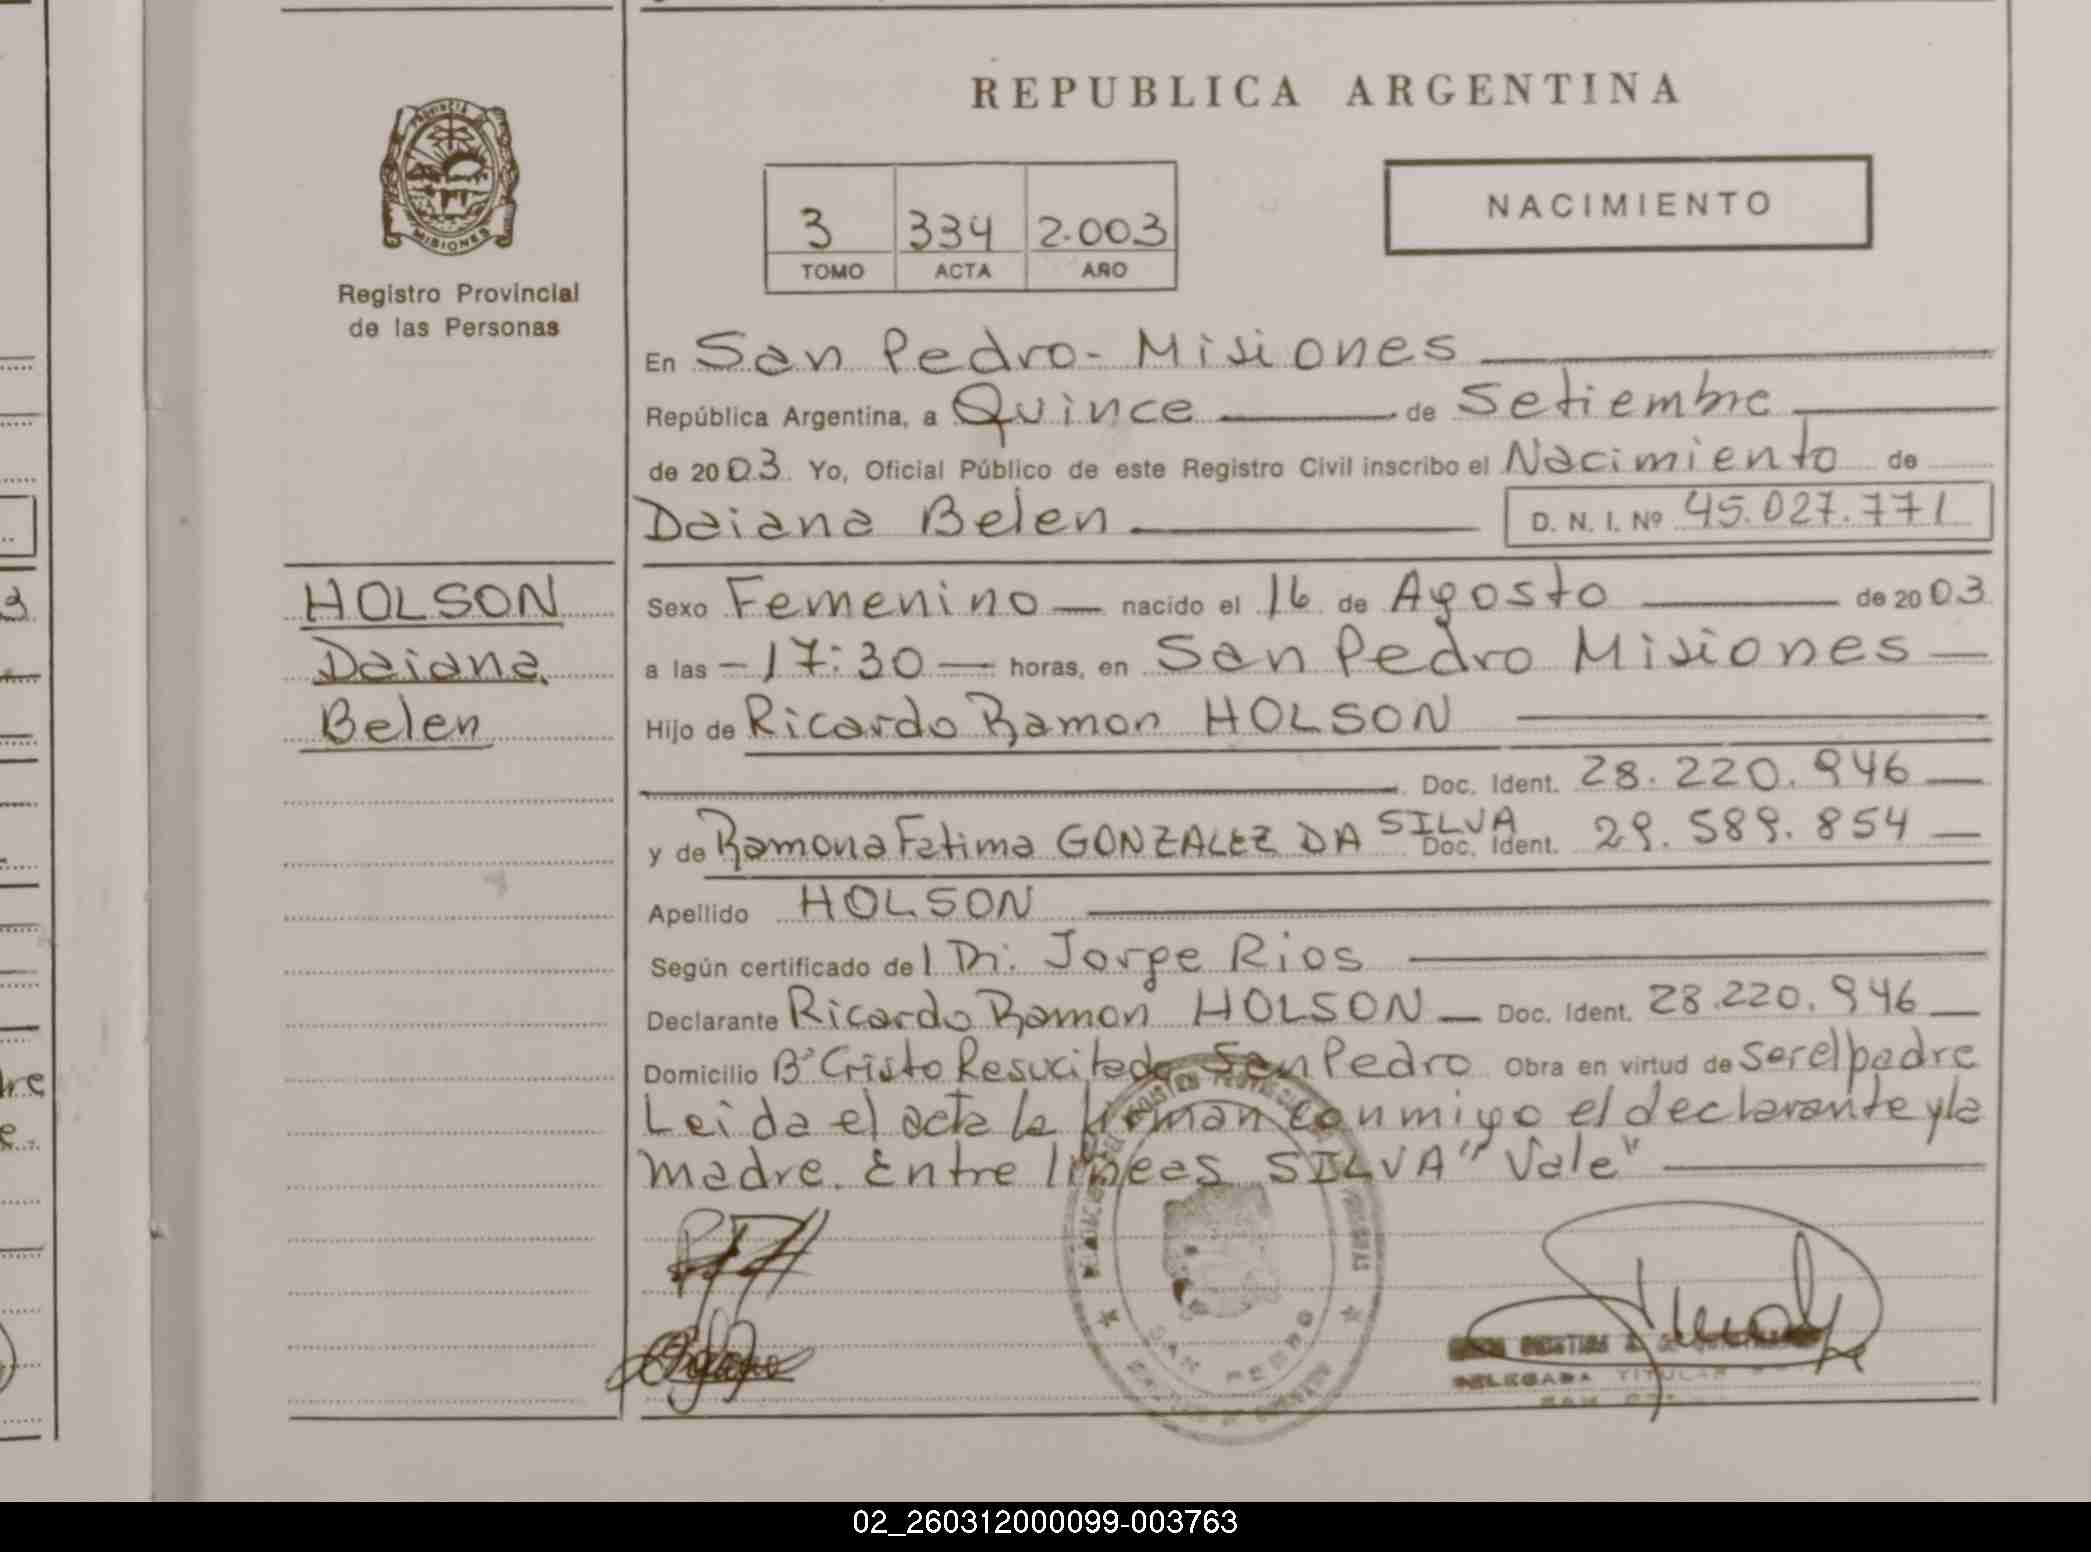 REPUBLICA ARGENTINA
PROVINCIA DE
MISIONES
Registro Provincial
de las Personas
3 334 2.003
TOMO ACTA AÑO
NACIMIENTO
En San Pedro - Misiones
República Argentina, a Quince de Setiembre
de 2003 Yo, Oficial Público de este Registro Civil inscribo el Nacimiento de
Daiana Belen D. N. I. Nº 45.027.771
HOLSON
Daiana
Belen
Sexo Femenino nacido el 16 de Agosto de 2003
a las - 17:30 horas, en San Pedro Misiones
Hijo de Ricardo Ramon HOLSON
Doc. Ident. 28.220.946
y de Ramona Fatima GONZALEZ DA SILVA Doc. Ident. 29.589.854
Apellido HOLSON
Según certificado del Dr. Jorge Rios
Declarante Ricardo Ramon HOLSON Doc. Ident. 28.220.946
Domicilio Bº Cristo Resucitado San Pedro Obra en virtud de ser el padre
Leida el acta la firman conmigo el declarante y la
madre. Entre lineas SILVA" Vale"
SAN PEDRO
DELEGADA TITULAR
02_260312000099-003763